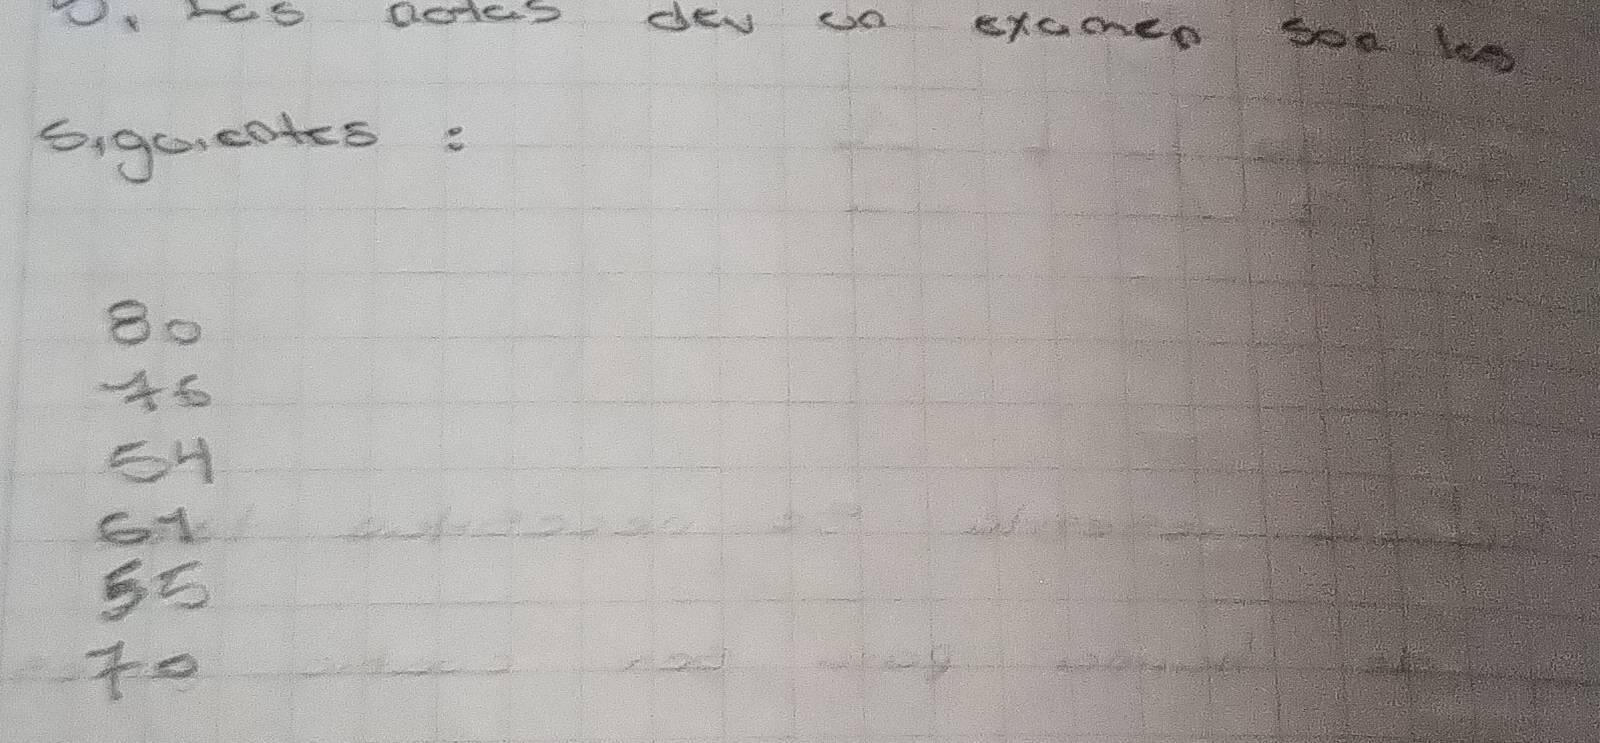 Las notas dev un examen son las
siguientes :
80
75
54
61
55
70